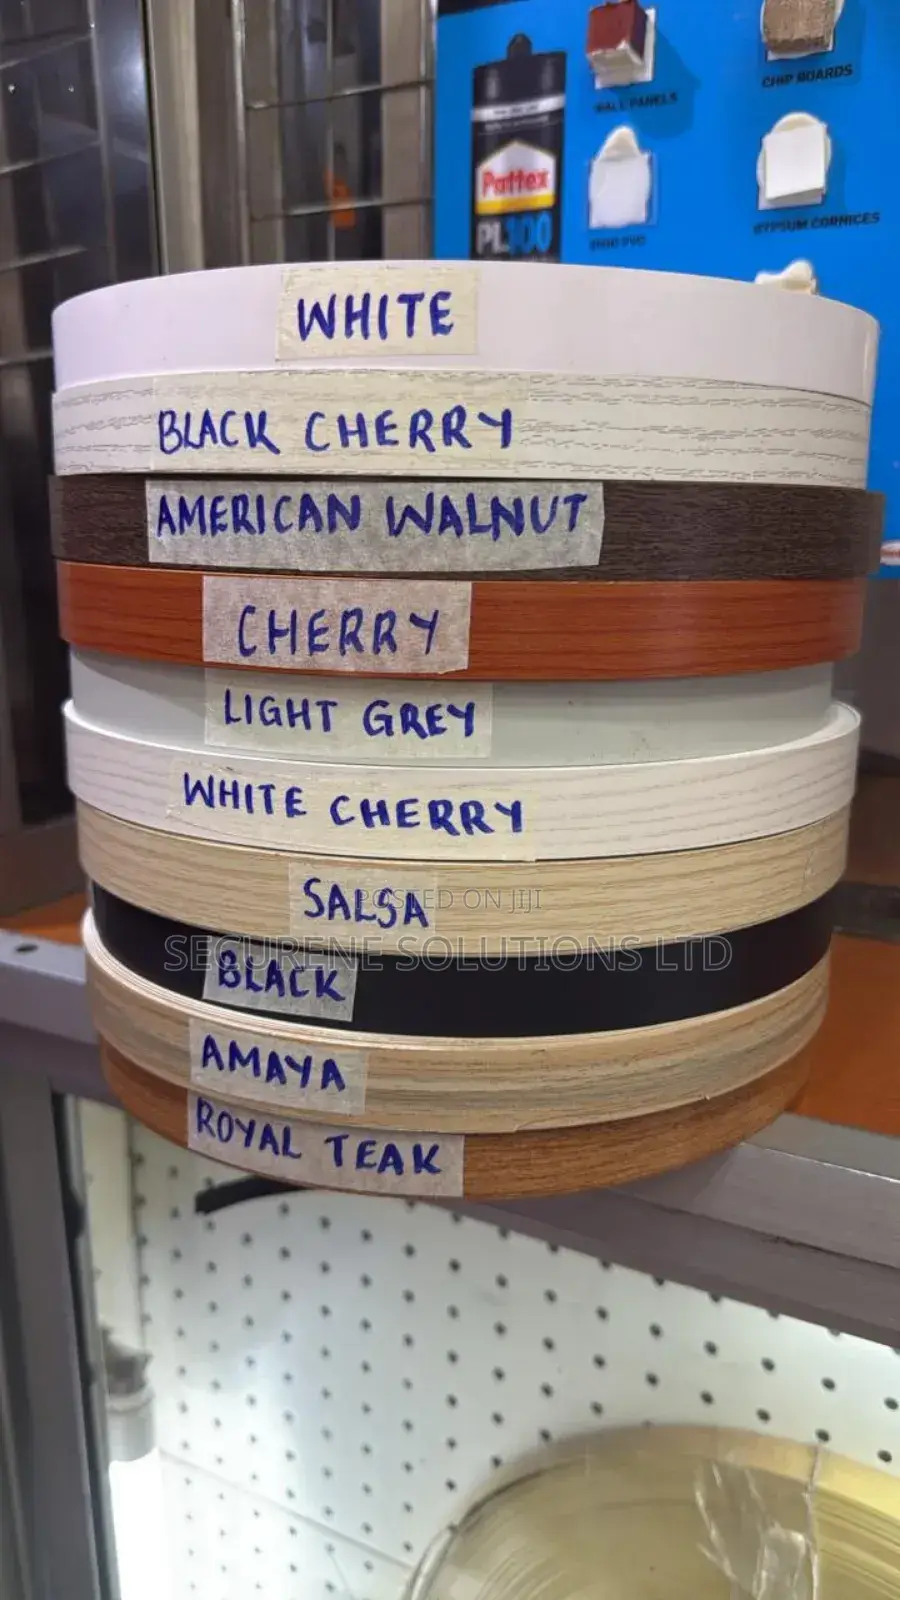 CHIP BOARDS
WALL PANELS
Pattex
PL100
GYPSUM CORNICES
WHITE
BLACK CHERRY
AMERICAN WALNUT
CHERRY
LIGHT GREY
WHITE CHERRY
SALSA
POSTED ON JIJI
SECURENE SOLUTIONS LTD
BLACK
AMAYA
ROYAL TEAK